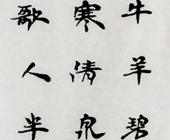 牛羊碧
寒倩泉
歌人半